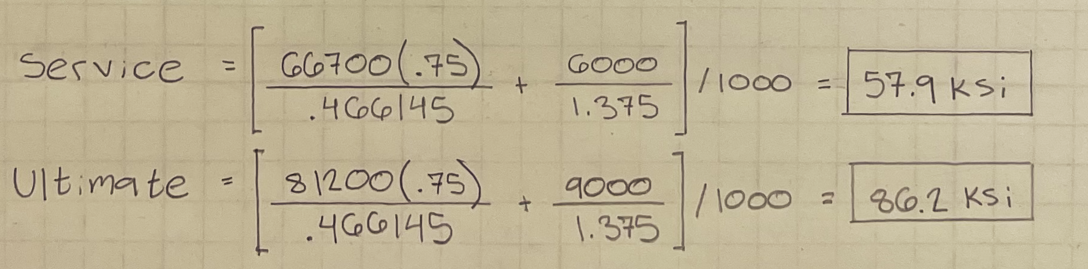 Service = [ 66700(.75) / .466145 + 6000 / 1.375 ] /1000 = 57.9 ksi
Ultimate = [ 81200(.75) / .466145 + 9000 / 1.375 ] /1000 = 86.2 ksi